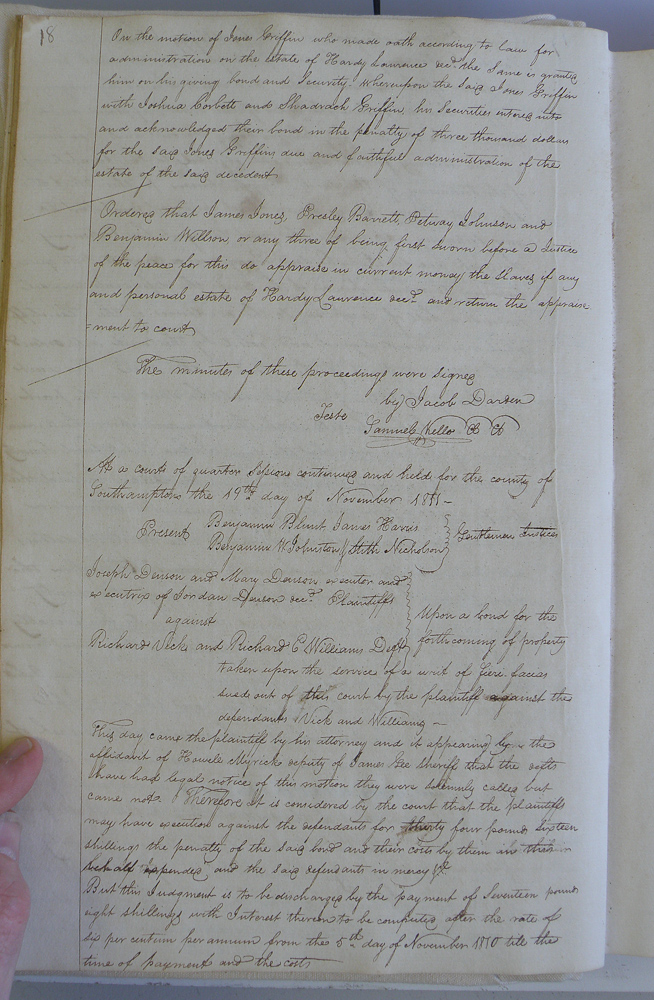 18
On the motion of Jones Griffin who made oath according to law for
administration on the estate of Hardy Laurence decd the same is granted
him on his giving bond and security. Whereupon the said Jones Griffin
with Joshua Corbett and Shadrach Griffin, his Securities entered into
and acknowledged their bond in the penalty of three thousand dollars
for the said Jones Griffins due and faithful administration of the
estate of the said decedent
Ordered that James Jones, Presley Barrett, Petway Johnson and
Benjamin Willson or any three of being first sworn before a Justice
of the peace for this do appraise in current money the slaves if any
and personal estate of Hardy Laurence decd and return the appraise
=ment to court
The minutes of these proceedings were signed
by Jacob Darden
Teste
Samuel Kello
At a court of quarter Session continued and held for the county of
Southampton the 19th day of November 1811 -
Present
Benjamin Blunt James Harris
Benjamin W Johnston Stith Nicholson
Gentlemen Justices
Joseph Denson and Mary Denson executor and
executrix of Jordan Denson decd. Plaintiffs
against
Richard Vick and Richard C Williams Defts
Upon a bond for the
forthcoming of property
taken upon the service of a writ of fiere facias
sued out of this court by the plaintiff against the
defendants Vick and Williams -
This day came the plaintiff by his attorney and it appearing by the
affidavit of Howell Myrick deputy of James Gee sheriff that the defts
have had legal notice of this motion they were solemnly called but
came not. Therefore It is considered by the court that the plaintiffs
may have execution against the defendants for thirty four pounds sixteen
shillings the penalty of the said bond and their costs by them
behalf expended and the said defendants in mercy &c
But this Judgment is to be discharged by the payment of Seventeen pounds
eight shillings with Interest thereon to be computed after the rate of
six per centum per annum from the 5th day of November 1810 till the
time of payment and the costs